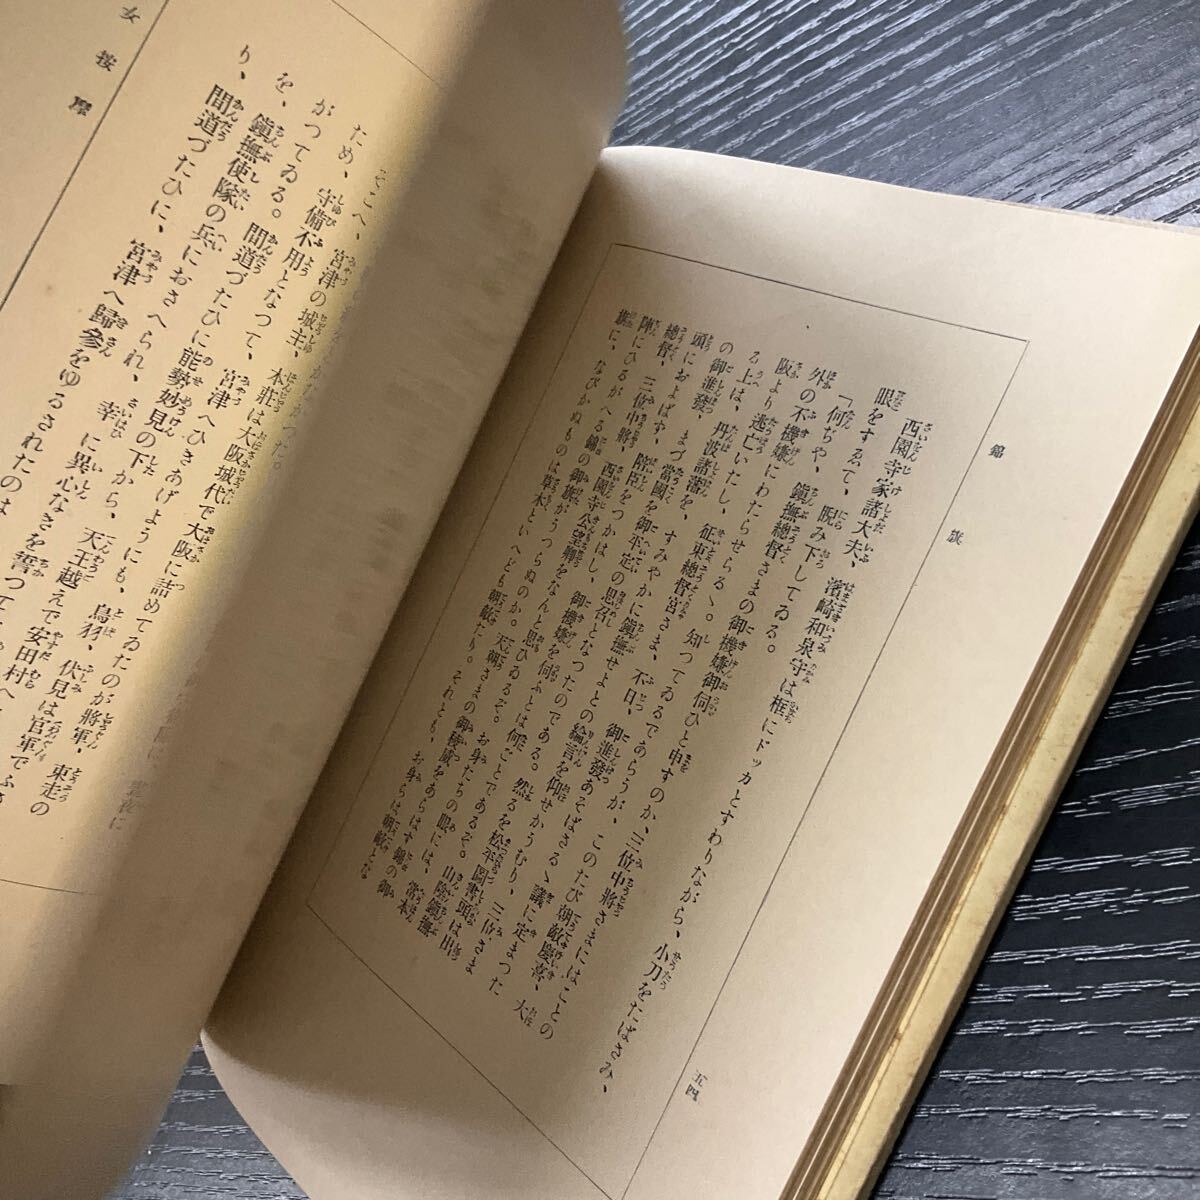 錦旗
五四
西園寺家諸大夫、濱崎和泉守は框にドッカとすわりながら、小刀をたばさみ、
眼をすゑて、睨み下してゐる。
「何ぢや、鎭撫總督さまの御機嫌御伺ひと申すのか、三位中將さまにはことの
外の不機嫌にわたらせらるゝ。知つてゐるであらうが、このたび朝敵慶喜、大
阪より逃亡いたし、征東總督宮さま、不日、御進發あそばさるゝ議に定まつた
る上は、丹波諸藩を、すみやかに鎭撫せよとの綸言を仰せかうむり、三位さま
の御進發、まづ當國を御平定の思召となつたのである。然るを松平圖書頭は出
頭におよばず、陪臣をつかはし、御機嫌を伺ふとは何ごとであるぞ。山陰鎭撫
總督、三位中將、西園寺公望卿をなんと思ひゐるぞ。お身たちの眼には、當本
陣にひるがへる錦の御旗がうつらぬのか。天朝さまの御稜威をあらはす錦の御
旗に、なびかぬものは草木といへども朝敵たり。それとも、お身らは朝敵とな
女按摩
そこへ、宮津の城主、本莊は大阪城代で大阪に詰めてゐたのが將軍、東走の
ため、守備不用となつて、宮津へひきあげようにも、鳥羽、伏見は官軍でふさ
がつてゐる。間道づたひに能勢妙見の下から、天王越えで安田村へ
を、鎭撫使隊の兵におさへられ、幸に異心なきを誓つて
り、間道づたひに、宮津へ歸參をゆるされたのは